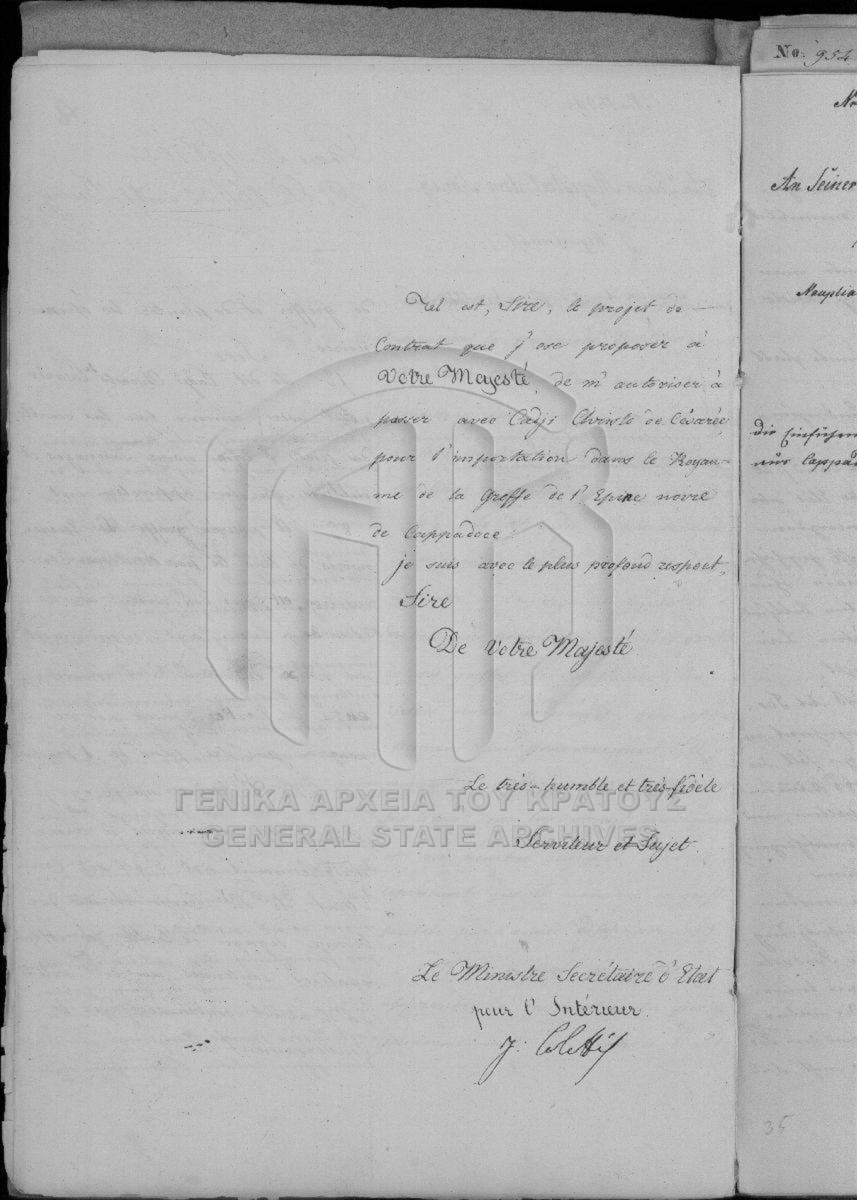 Tel est, Sire, le projet de
Contrat que j'ose proposer à
Votre Majesté, de m'autoriser à
passer avec Cadji Christo de Césarée,
pour l'importation dans le Royau-
me de la Greffe de l'Epine noire
de Cappadoce.
je suis avec le plus profond respect,
Sire
De Votre Majesté
Le très-humble et très-fidèle
Serviteur et Sujet.
Le Ministre Secrétaire d'Etat
pour l'Intérieur.
J. Coletti
ΓΕΝΙΚΑ ΑΡΧΕΙΑ ΤΟΥ ΚΡΑΤΟΥΣ
GENERAL STATE ARCHIVES
No. 954
An Seiner
Nauplia
die Einführun
aus Cappad
35